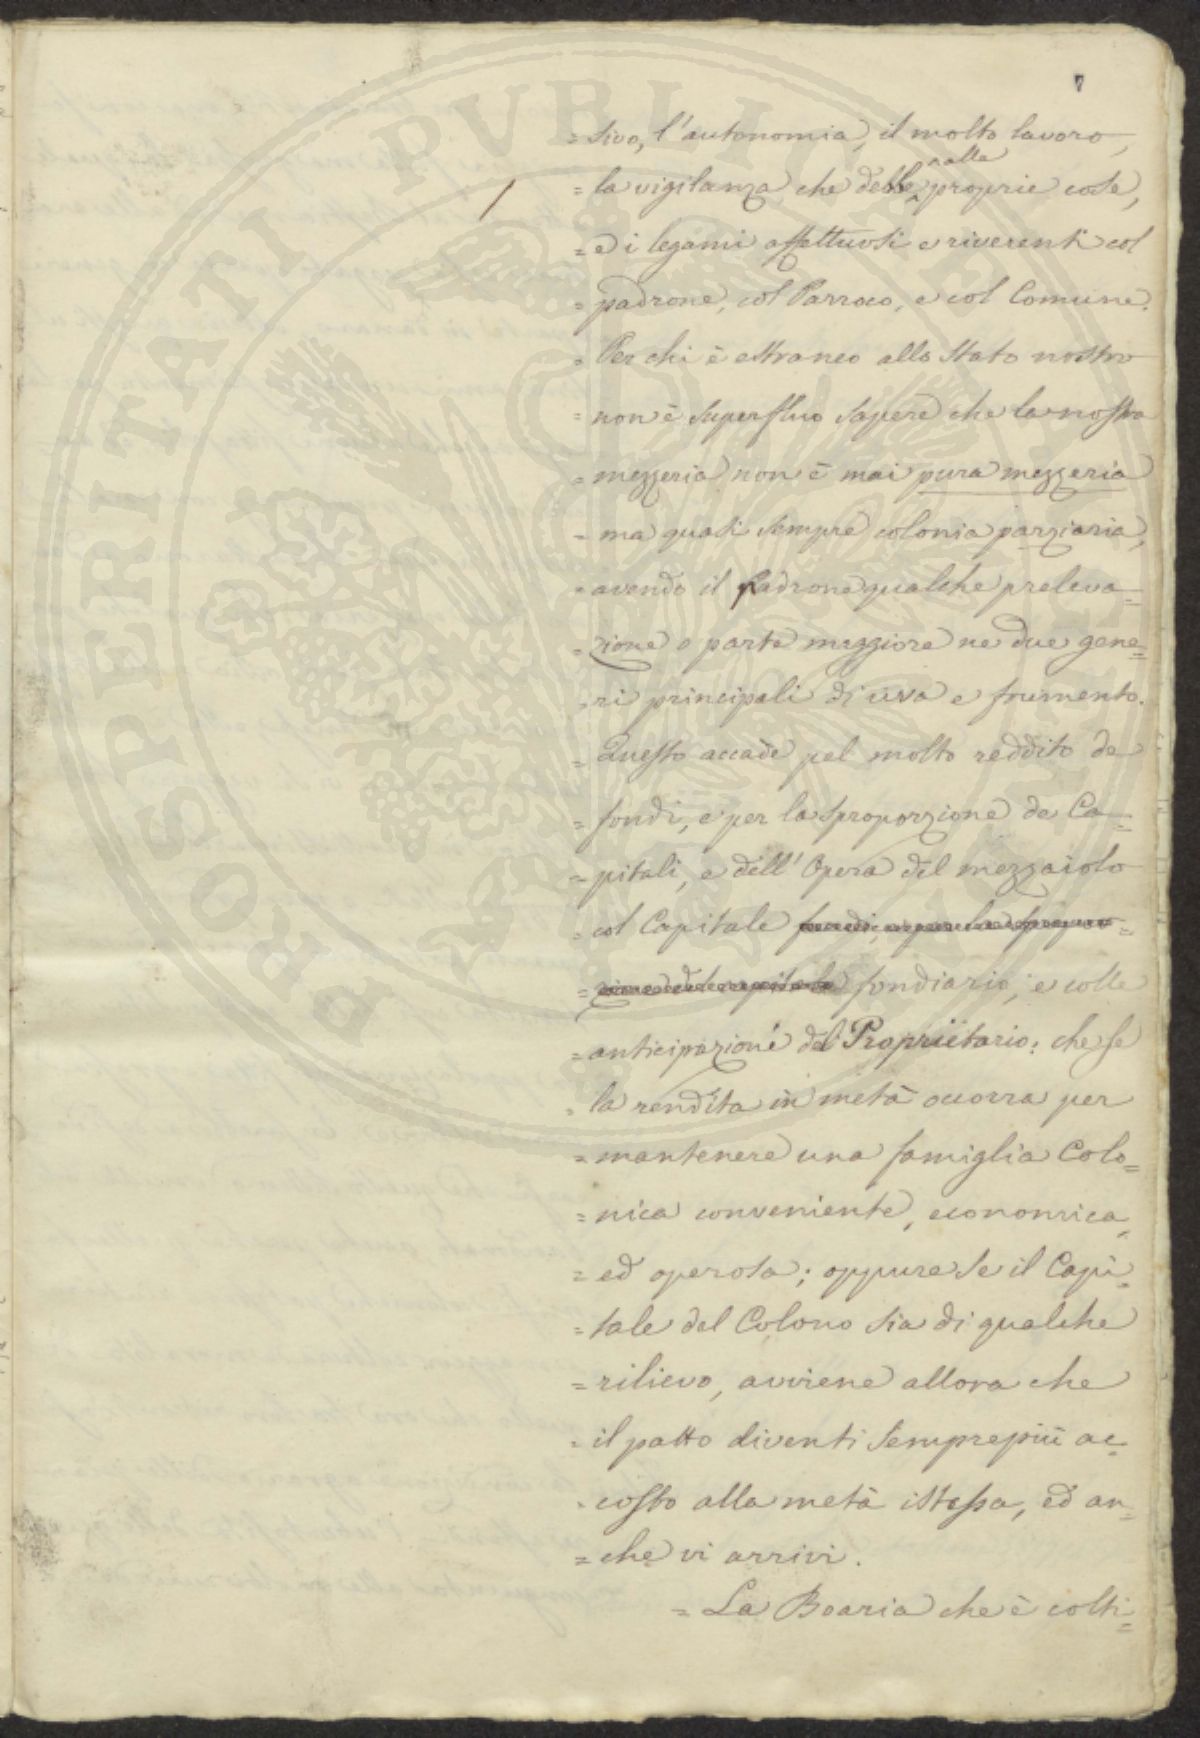 7
PROSPERITATI PVBLICAE
= sivo, l'autonomia, il molto lavoro,
nalle
= la vigilanza che delle proprie cose,
= e i legami affettuosi e riverenti col
= padrone, col Parroco, e col Comune.
= Per chi è estraneo allo Stato nostro
= non è superfluo sapere che la nostra
= mezzeria non è mai pura mezzeria
= ma quasi sempre colonia parziaria,
= avendo il Padrone qualche preleva=
= zione o parte maggiore ne due gene=
= ri principali di uva e frumento.
= Questo accade pel molto reddito de
= fondi, e per la sproporzione de Ca=
= pitali, e dell' Opera del mezzaiolo
= col Capitale
= fondiario, e colle
= anticipazione del Proprietario: che se
= la rendita in metà occorra per
= mantenere una famiglia Colo=
= nica conveniente, economica,
= ed operosa; oppure se il Capi=
= tale del Colono sia di qualche
= rilievo, avviene allora che
= il patto diventi semprepiù ac=
= costo alla metà istessa, ed an=
= che vi arrivi.
= La Boaria che è colti=